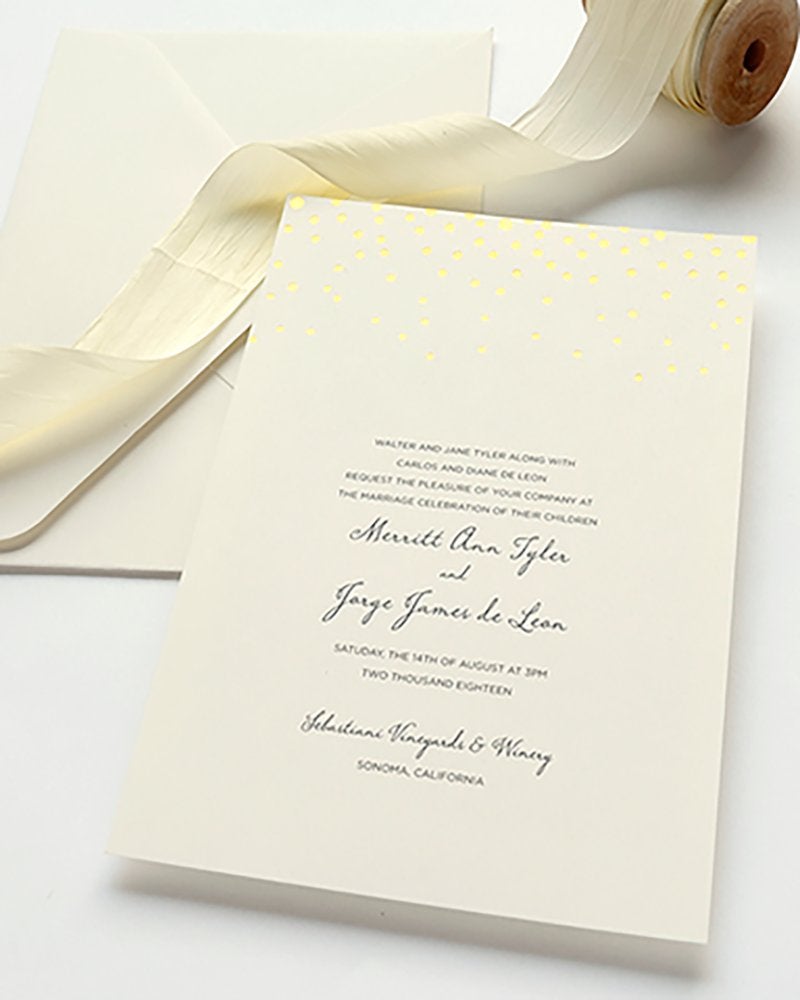 WALTER AND JANE TYLER ALONG WITH
CARLOS AND DIANE DE LEON
REQUEST THE PLEASURE OF YOUR COMPANY AT
THE MARRIAGE CELEBRATION OF THEIR CHILDREN
Merritt Ann Tyler
and
Jorge James de Leon
SATUDAY, THE 14TH OF AUGUST AT 3PM
TWO THOUSAND EIGHTEEN
Sebastiani Vineyards & Winery
SONOMA, CALIFORNIA